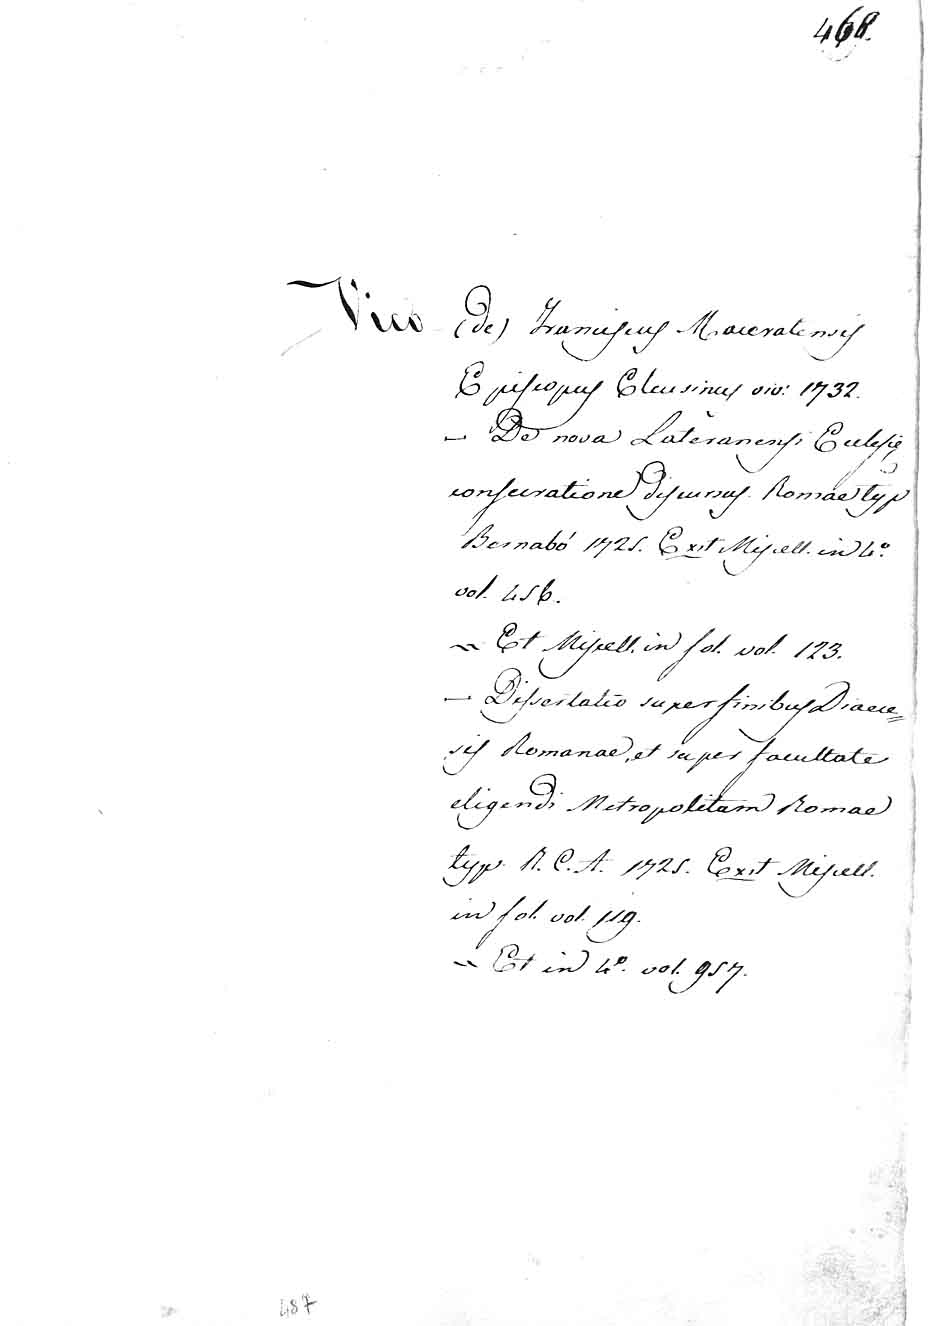 468.
Vico (de) Franciscus Maceratensis
Episcopus Eleusinus viv: 1732.
— De nova Lateranensi Ecclesię
consecratione discursus. Romae typ
Bernabó 1725. Exst Miscell. in 4.°
vol. 456.
~ Et Miscell. in fol. vol. 123.
— Dissertatio super finibus Diaece=
sis Romanae, et super facultate
eligendi Metropolitam Romae
typ. R. C. A. 1725. Exst Miscell.
in fol. vol. 119.
~ Et in 4.° vol. 957.
487